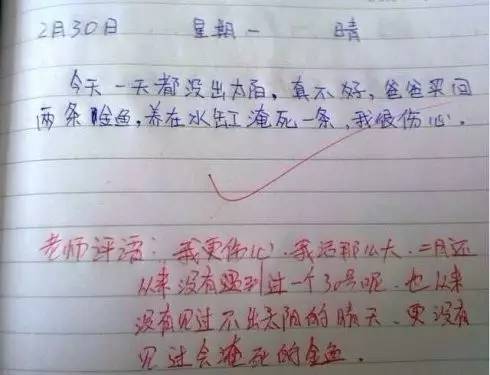 2月30日 星期一 晴
今天一天都没出太阳，真不好，爸爸买回
两条金鱼，养在水缸淹死一条，我很伤心。
老师评语：我更伤心．我活那么大．二月还
从来没有遇到过一个30号呢．也从来
没有见过不出太阳的晴天．更没有
见过会淹死的金鱼．